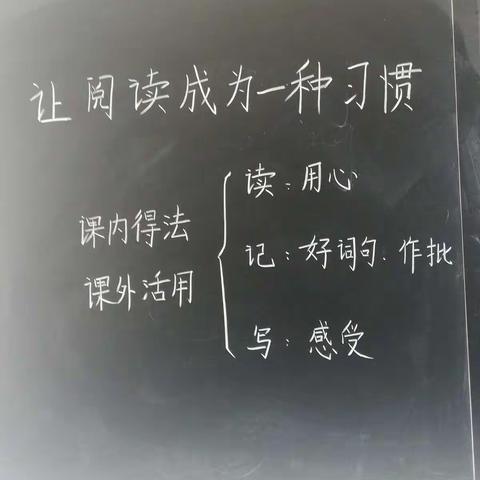 让阅读成为一种习惯
课内得法
课外活用
读：用心
记：好词句.作批
写：感受